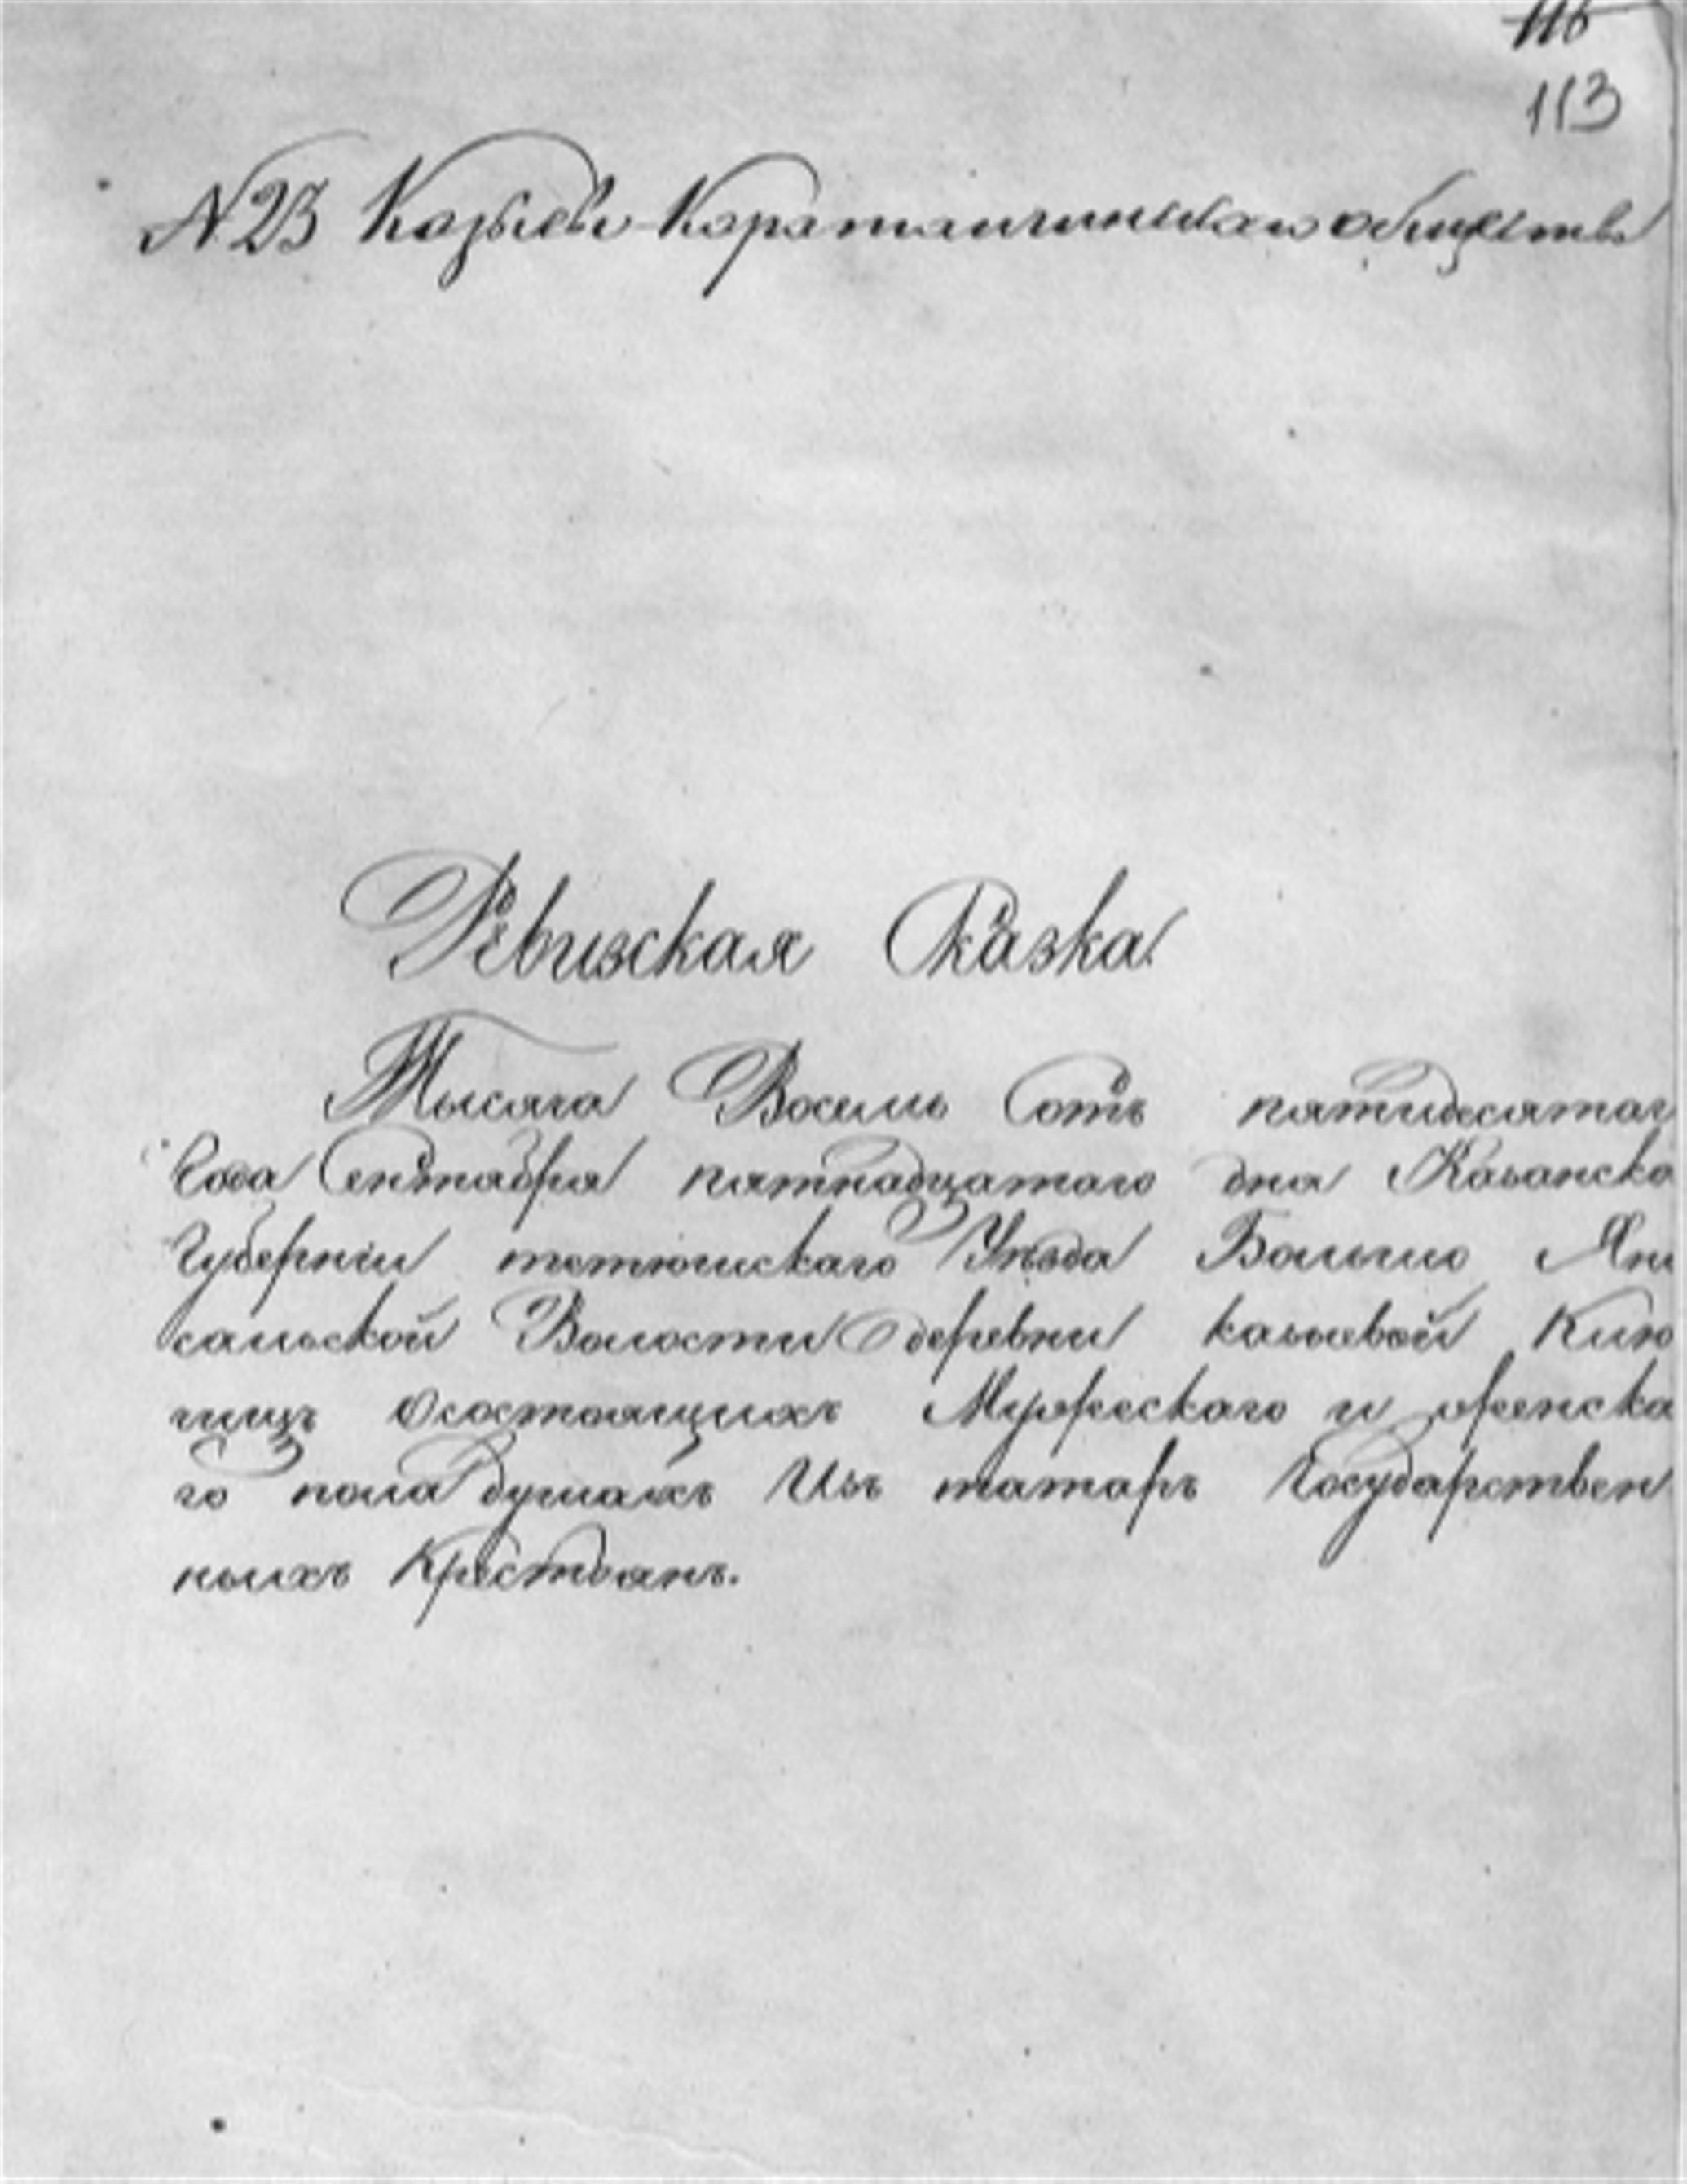 116
113
N 23 Козыево-Коратаичинскаго общества
Ревизская Сказка
Тысяча Восемь Сотъ пятидесятаг
Года Сентабра пятнадцатаго дна Казанско
Губерніи тетюшскаго Уѣзда Большо Яни
сальской Волости деревни казыевой Кию
чищъ Осостоящихъ Мужескаго и женска
го пола душахъ Изъ татаръ Государствен
ныхъ Крестьянъ.